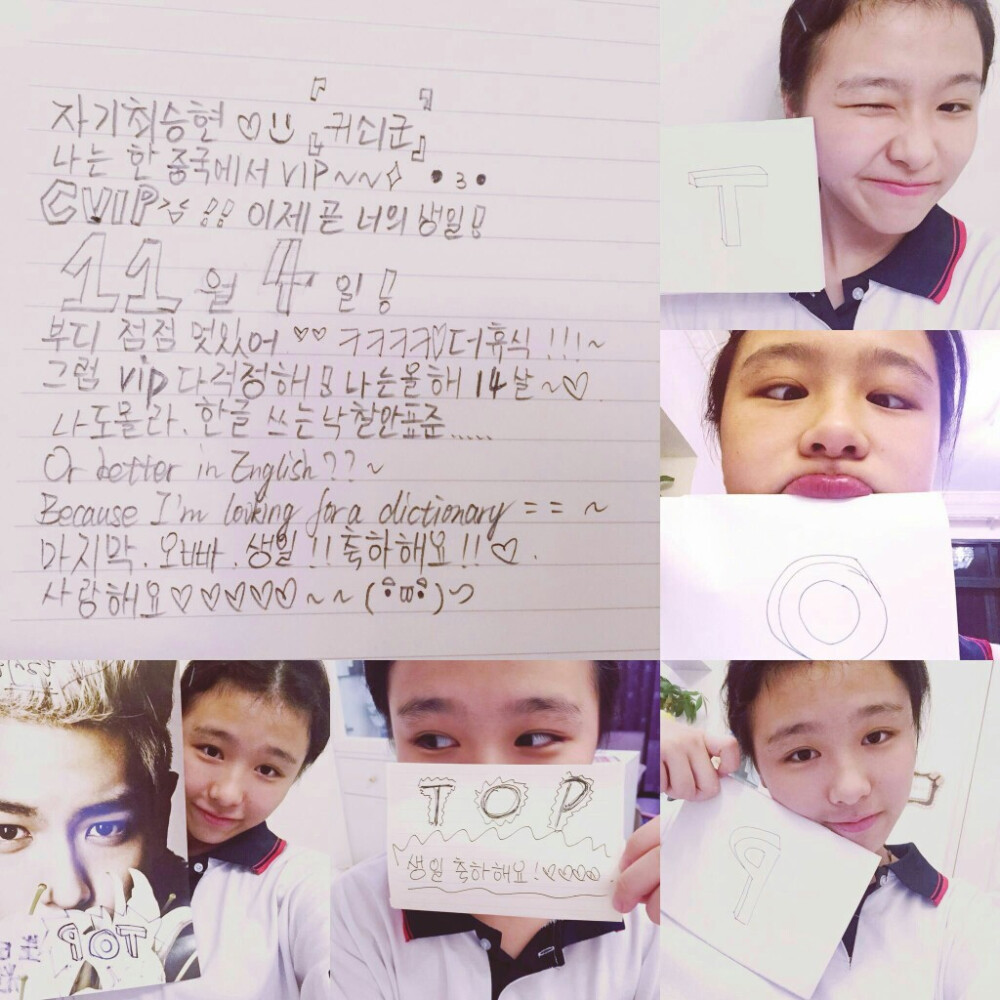 자기최승현♡
『귀쇠군』
나는 한 중국에서 VIP~~
CVIP!! 이제 곧 너의 생일!
11월 4일!
부디 점점 멋있어 ♡♡ ㅋㅋㅋㅋ더휴식!!!~
그럼 vip다걱정해! 나는올해 14살~♡
나도몰라. 한글 쓰는낙찰안표준.....
Or better in English??~
Because I'm looking for a dictionary == ~
마지막.오빠.생일!!축하해요!!♡.
사랑해요♡♡♡♡♡~~
T
O
TOP
TOP
생일 축하해요!♡♡♡♡
P